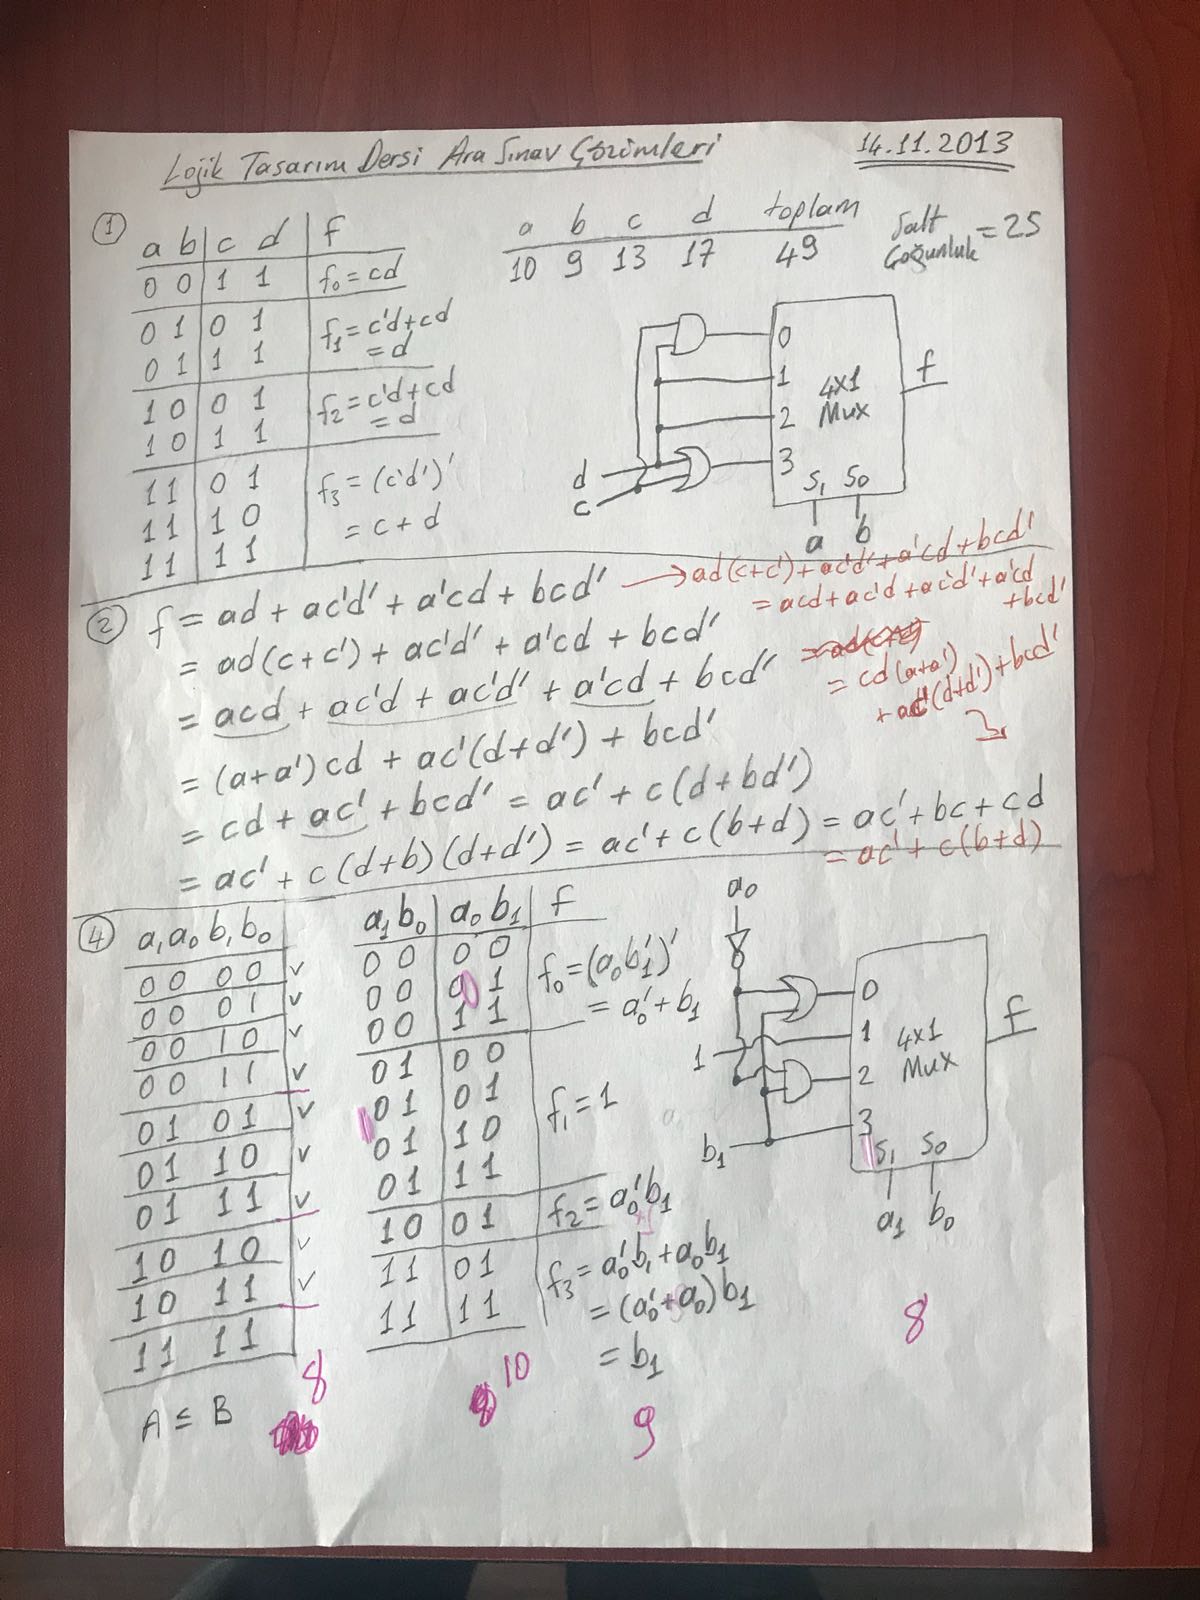 Lojik Tasarım Dersi Ara Sınav Çözümleri 14.11.2013
① a b c d f
0 0 1 1 f₀ = cd
0 1 0 1 f₁ = c'd + cd
0 1 1 1 = d
1 0 0 1 f₂ = c'd + cd
1 0 1 1 = d
1 1 0 1 f₃ = (c'd')'
1 1 1 0 = c + d
1 1 1 1
a b c d toplam
10 9 13 17 49
Salt
Çoğunluk = 25
0
1
2
3
4x1
Mux
f
S₁ S₀
d
c
a b
② f = ad + ac'd' + a'cd + bcd' → ad(c+c') + ac'd' + a'cd + bcd'
= acd + ac'd + ac'd' + a'cd
+ bcd'
= ad(c+c') + ac'd' + a'cd + bcd'
= cd(a+a')
+ ac'(d+d') + bcd'
= acd + ac'd + ac'd' + a'cd + bcd'
= (a+a')cd + ac'(d+d') + bcd'
= cd + ac' + bcd' = ac' + c(d+bd')
= ac' + c(d+b)(d+d') = ac' + c(b+d) = ac' + bc + cd
= ac' + c(b+d)
④ a₁a₀ b₁b₀
00 00 ✓
00 01 ✓
00 10 ✓
00 11 ✓
01 01 ✓
01 10 ✓
01 11 ✓
10 10 ✓
10 11 ✓
11 11
A ≤ B
8
a₁b₀ a₀b₁ f
00 00
00 01 f₀ = (a₀b₁')'
00 11 = a₀' + b₁
01 00
01 01 f₁ = 1
01 10
01 11
10 01 f₂ = a₀'b₁
11 01 f₃ = a₀'b₁ + a₀b₁
11 11 = (a₀' + a₀)b₁
= b₁
10
9
a₀
1
b₁
0
1
2
3
4x1
Mux
f
S₁ S₀
a₁ b₀
8